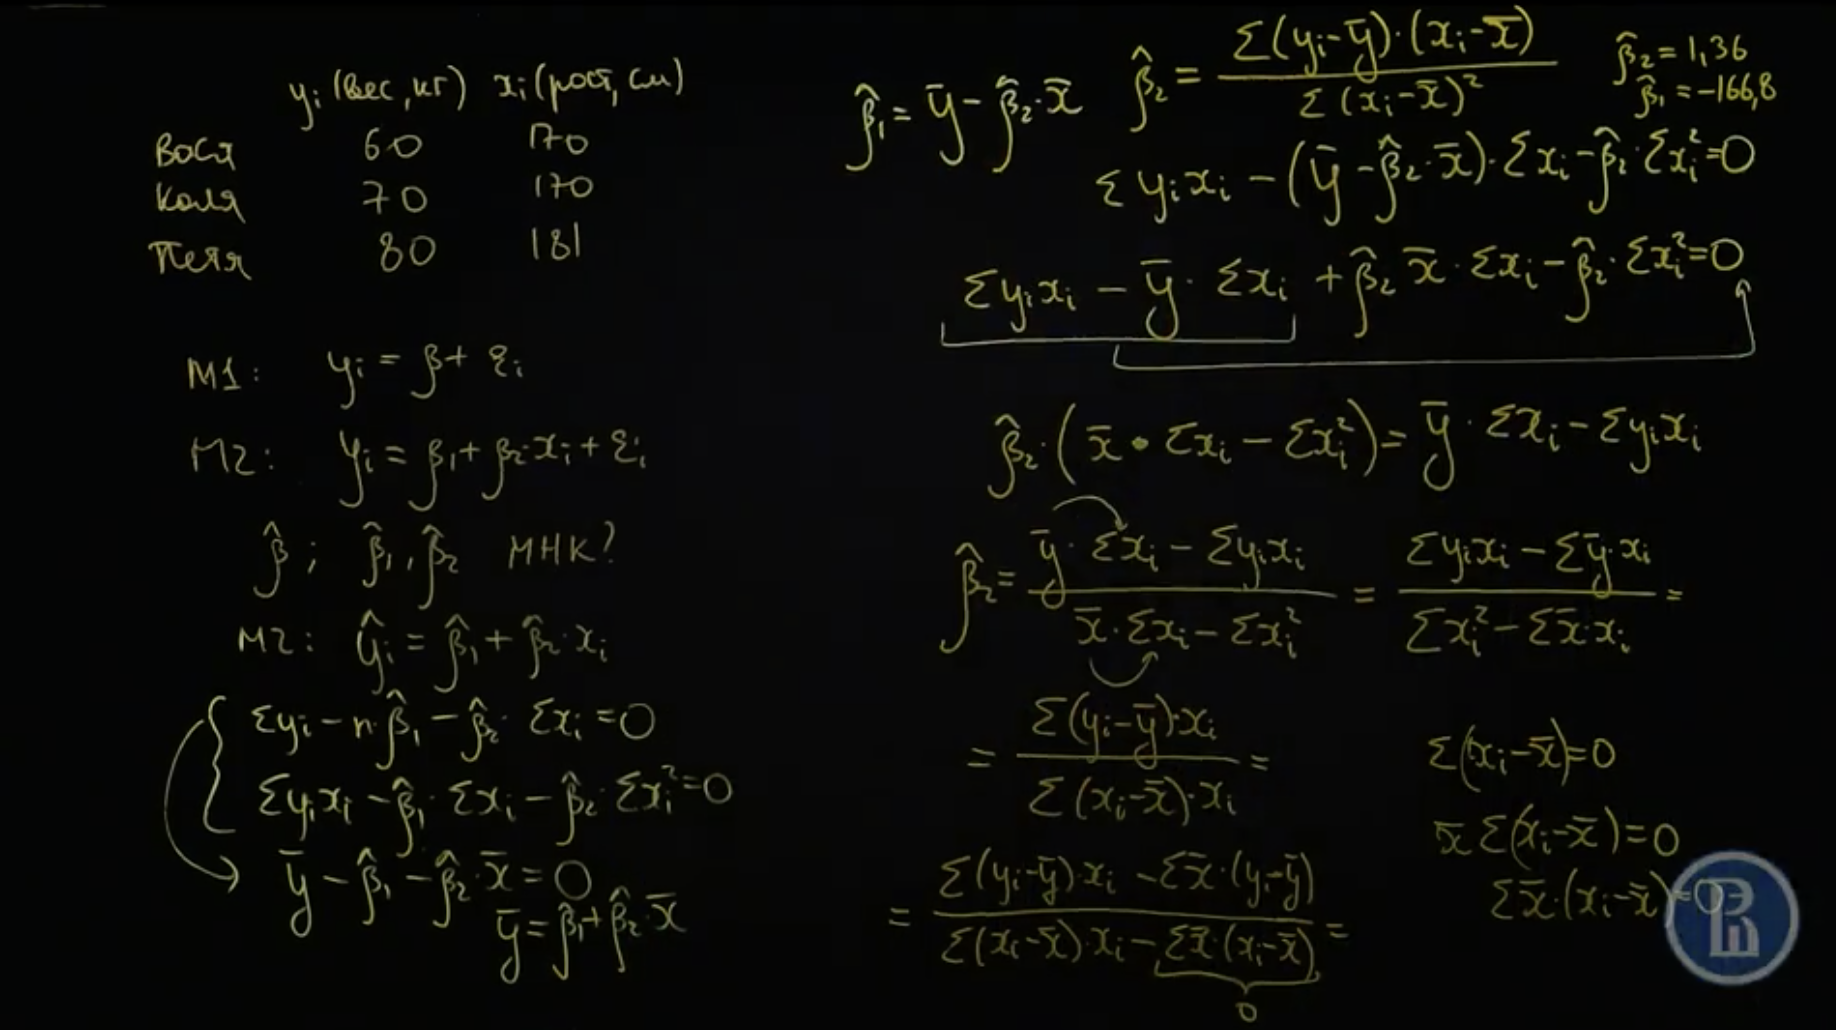 yᵢ (вес, кг) xᵢ (рост, см)
Вася 60 170
Коля 70 170
Петя 80 181
M1: yᵢ = β + εᵢ
M2: yᵢ = β₁ + β₂·xᵢ + εᵢ
β̂; β̂₁, β̂₂ МНК?
M2: ŷᵢ = β̂₁ + β̂₂·xᵢ
Σyᵢ − n·β̂₁ − β̂₂·Σxᵢ = 0
Σyᵢxᵢ − β̂₁·Σxᵢ − β̂₂·Σxᵢ² = 0
ȳ − β̂₁ − β̂₂·x̄ = 0
ȳ = β̂₁ + β̂₂·x̄
β̂₁ = ȳ − β̂₂·x̄ β̂₂ = Σ(yᵢ−ȳ)·(xᵢ−x̄) / Σ(xᵢ−x̄)²
β̂₂ = 1,36
β̂₁ = −166,8
Σyᵢxᵢ − (ȳ − β̂₂·x̄)·Σxᵢ − β̂₂·Σxᵢ² = 0
Σyᵢxᵢ − ȳ·Σxᵢ + β̂₂ x̄·Σxᵢ − β̂₂·Σxᵢ² = 0
β̂₂·(x̄·Σxᵢ − Σxᵢ²) = ȳ·Σxᵢ − Σyᵢxᵢ
β̂₂ = (ȳ·Σxᵢ − Σyᵢxᵢ) / (x̄·Σxᵢ − Σxᵢ²) = (Σyᵢxᵢ − Σȳ·xᵢ) / (Σxᵢ² − Σx̄·xᵢ) =
= Σ(yᵢ−ȳ)·xᵢ / Σ(xᵢ−x̄)·xᵢ =
= (Σ(yᵢ−ȳ)·xᵢ − Σx̄·(yᵢ−ȳ)) / (Σ(xᵢ−x̄)·xᵢ − Σx̄·(xᵢ−x̄)) =
0
Σ(xᵢ−x̄) = 0
x̄ Σ(xᵢ−x̄) = 0
Σx̄·(xᵢ−x̄) = 0